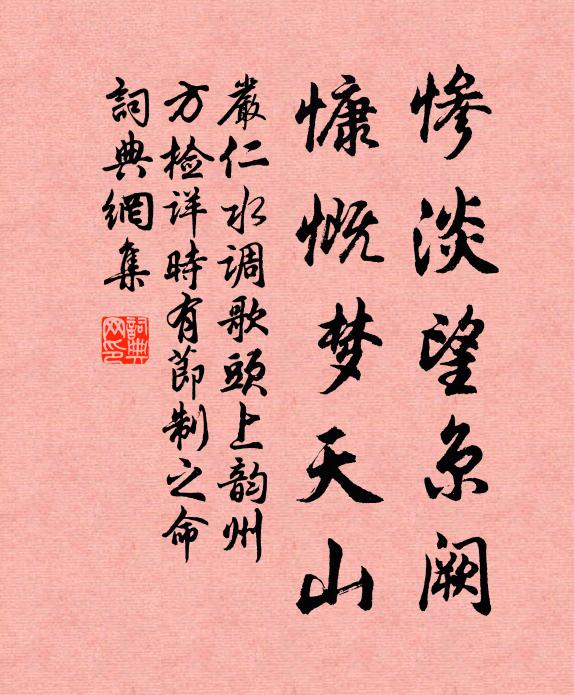 惨淡望京阙
慷慨梦天山
嚴仁水调歌頭上韵州
方检详時有節制之命
詞典網集
詞典网印